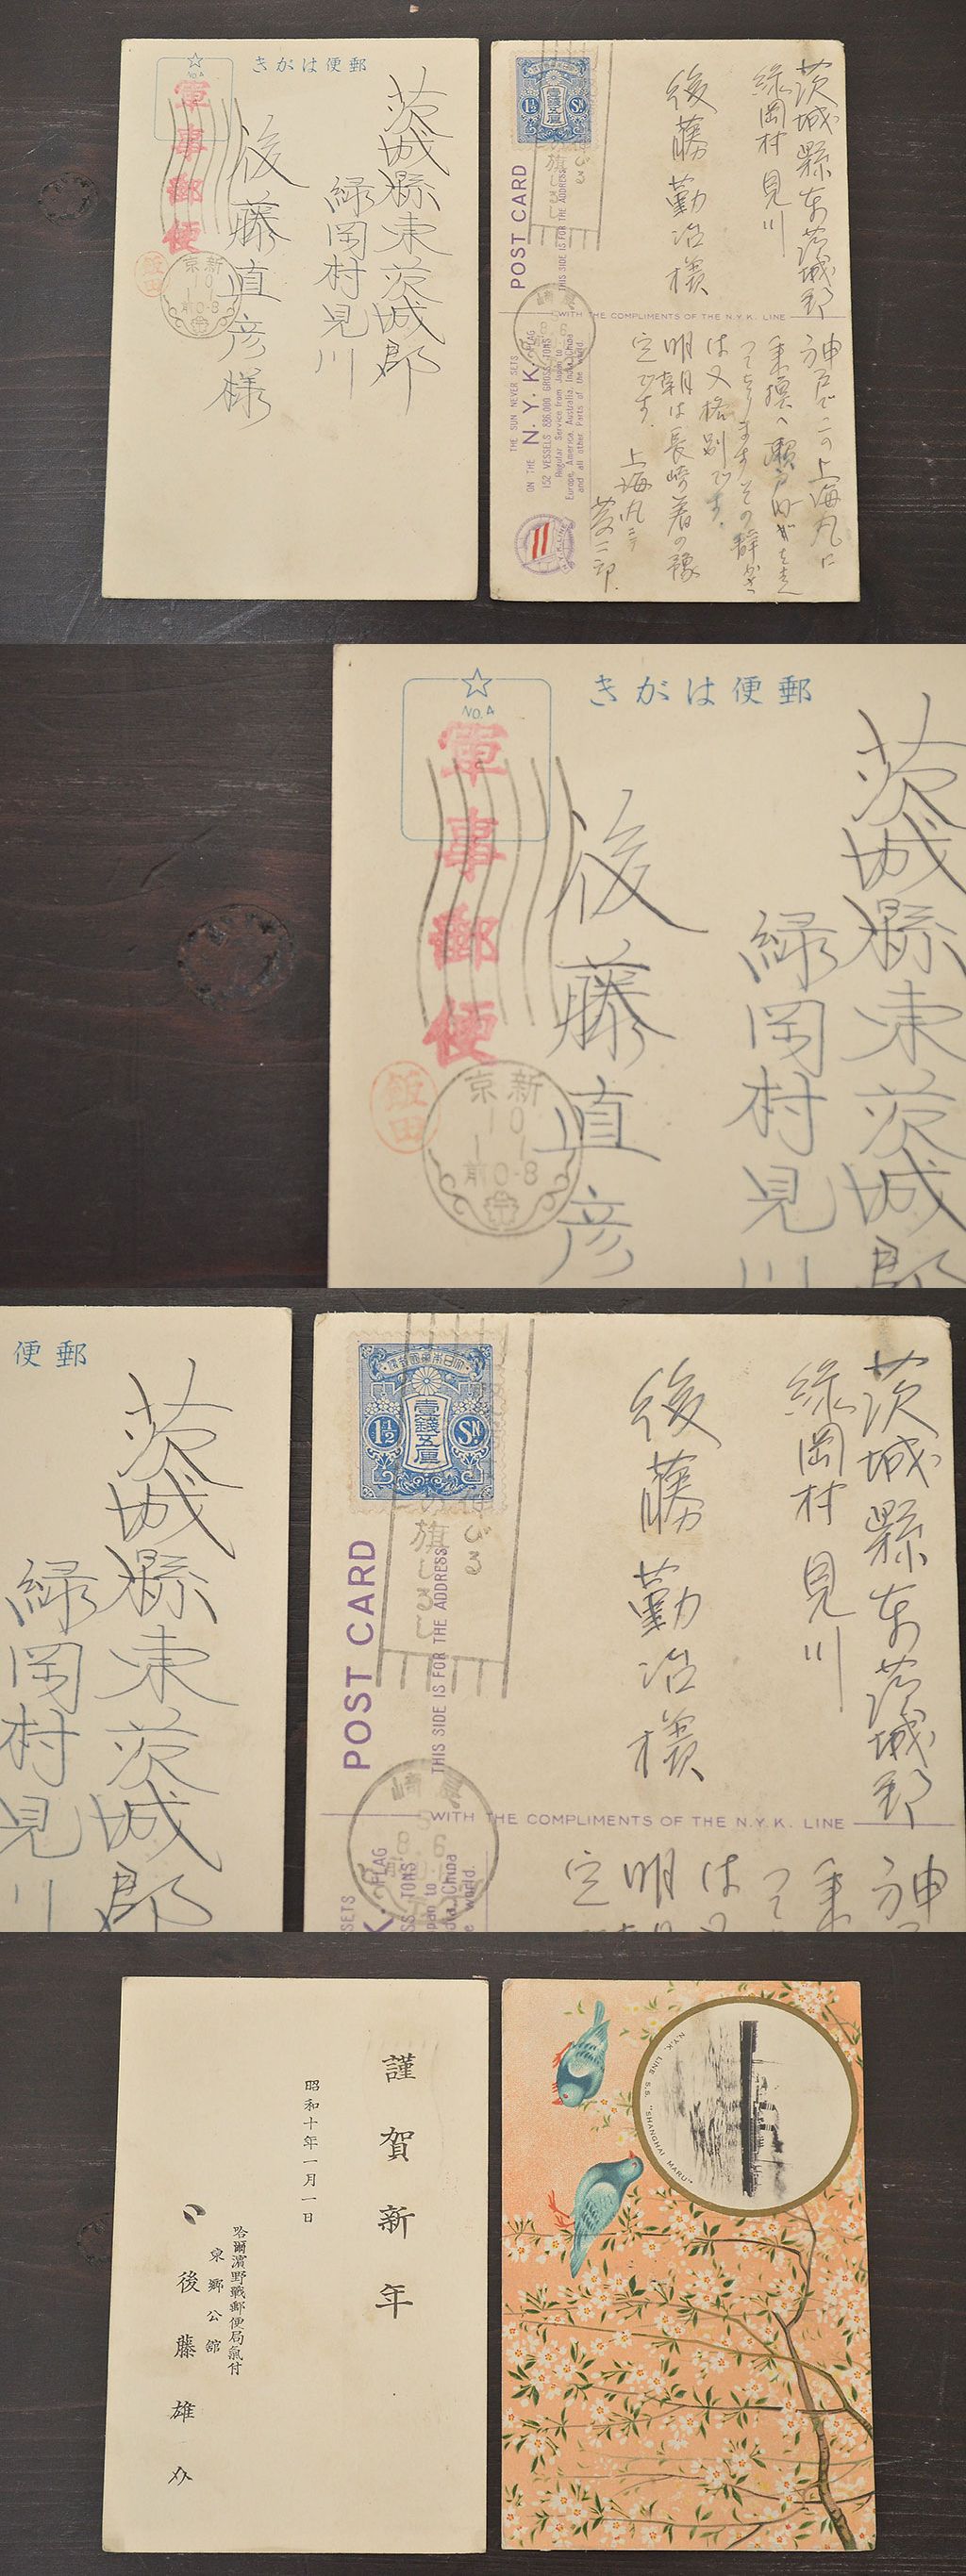 郵便はがき
NO.4
軍事郵便
飯田
新京
10
1 1
前0-8
茨城縣東茨城郡
緑岡村見川
後藤直彦様
1½ Sn
壹錢五厘
の旗じるし
POST CARD
THIS SIDE IS FOR THE ADDRESS
茨城縣東茨城郡
緑岡村見川
後藤勤治様
WITH THE COMPLIMENTS OF THE N.Y.K. LINE
THE SUN NEVER SETS
ON THE N.Y.K. FLAG
152 VESSELS 886,000 GROSS TONS
Regular Service from Japan to
Europe, America, Australia, India, China
and all other Parts of the world.
神戸でこの上海丸に
乗換へ瀬戸内
は又格別です。
明朝は長崎着の豫
定です。
上海丸ニテ
郵便はがき
NO.4
軍事郵便
飯田
新京
10
1 1
前0-8
茨城縣東茨城郡
緑岡村見川
後藤直彦
郵便
茨城縣東茨城郡
緑岡村見川
大日本帝國郵便
壹錢五厘
1½ Sn
の旗じるし
POST CARD
THIS SIDE IS FOR THE ADDRESS
長崎
5
8 6
茨城縣東茨城郡
緑岡村見川
後藤勤治様
WITH THE COMPLIMENTS OF THE N.Y.K. LINE
謹賀新年
昭和十年一月一日
哈爾濱野戰郵便局氣付
東郷公館
後藤雄
N.Y.K. LINE S.S. "SHANGHAI MARU"